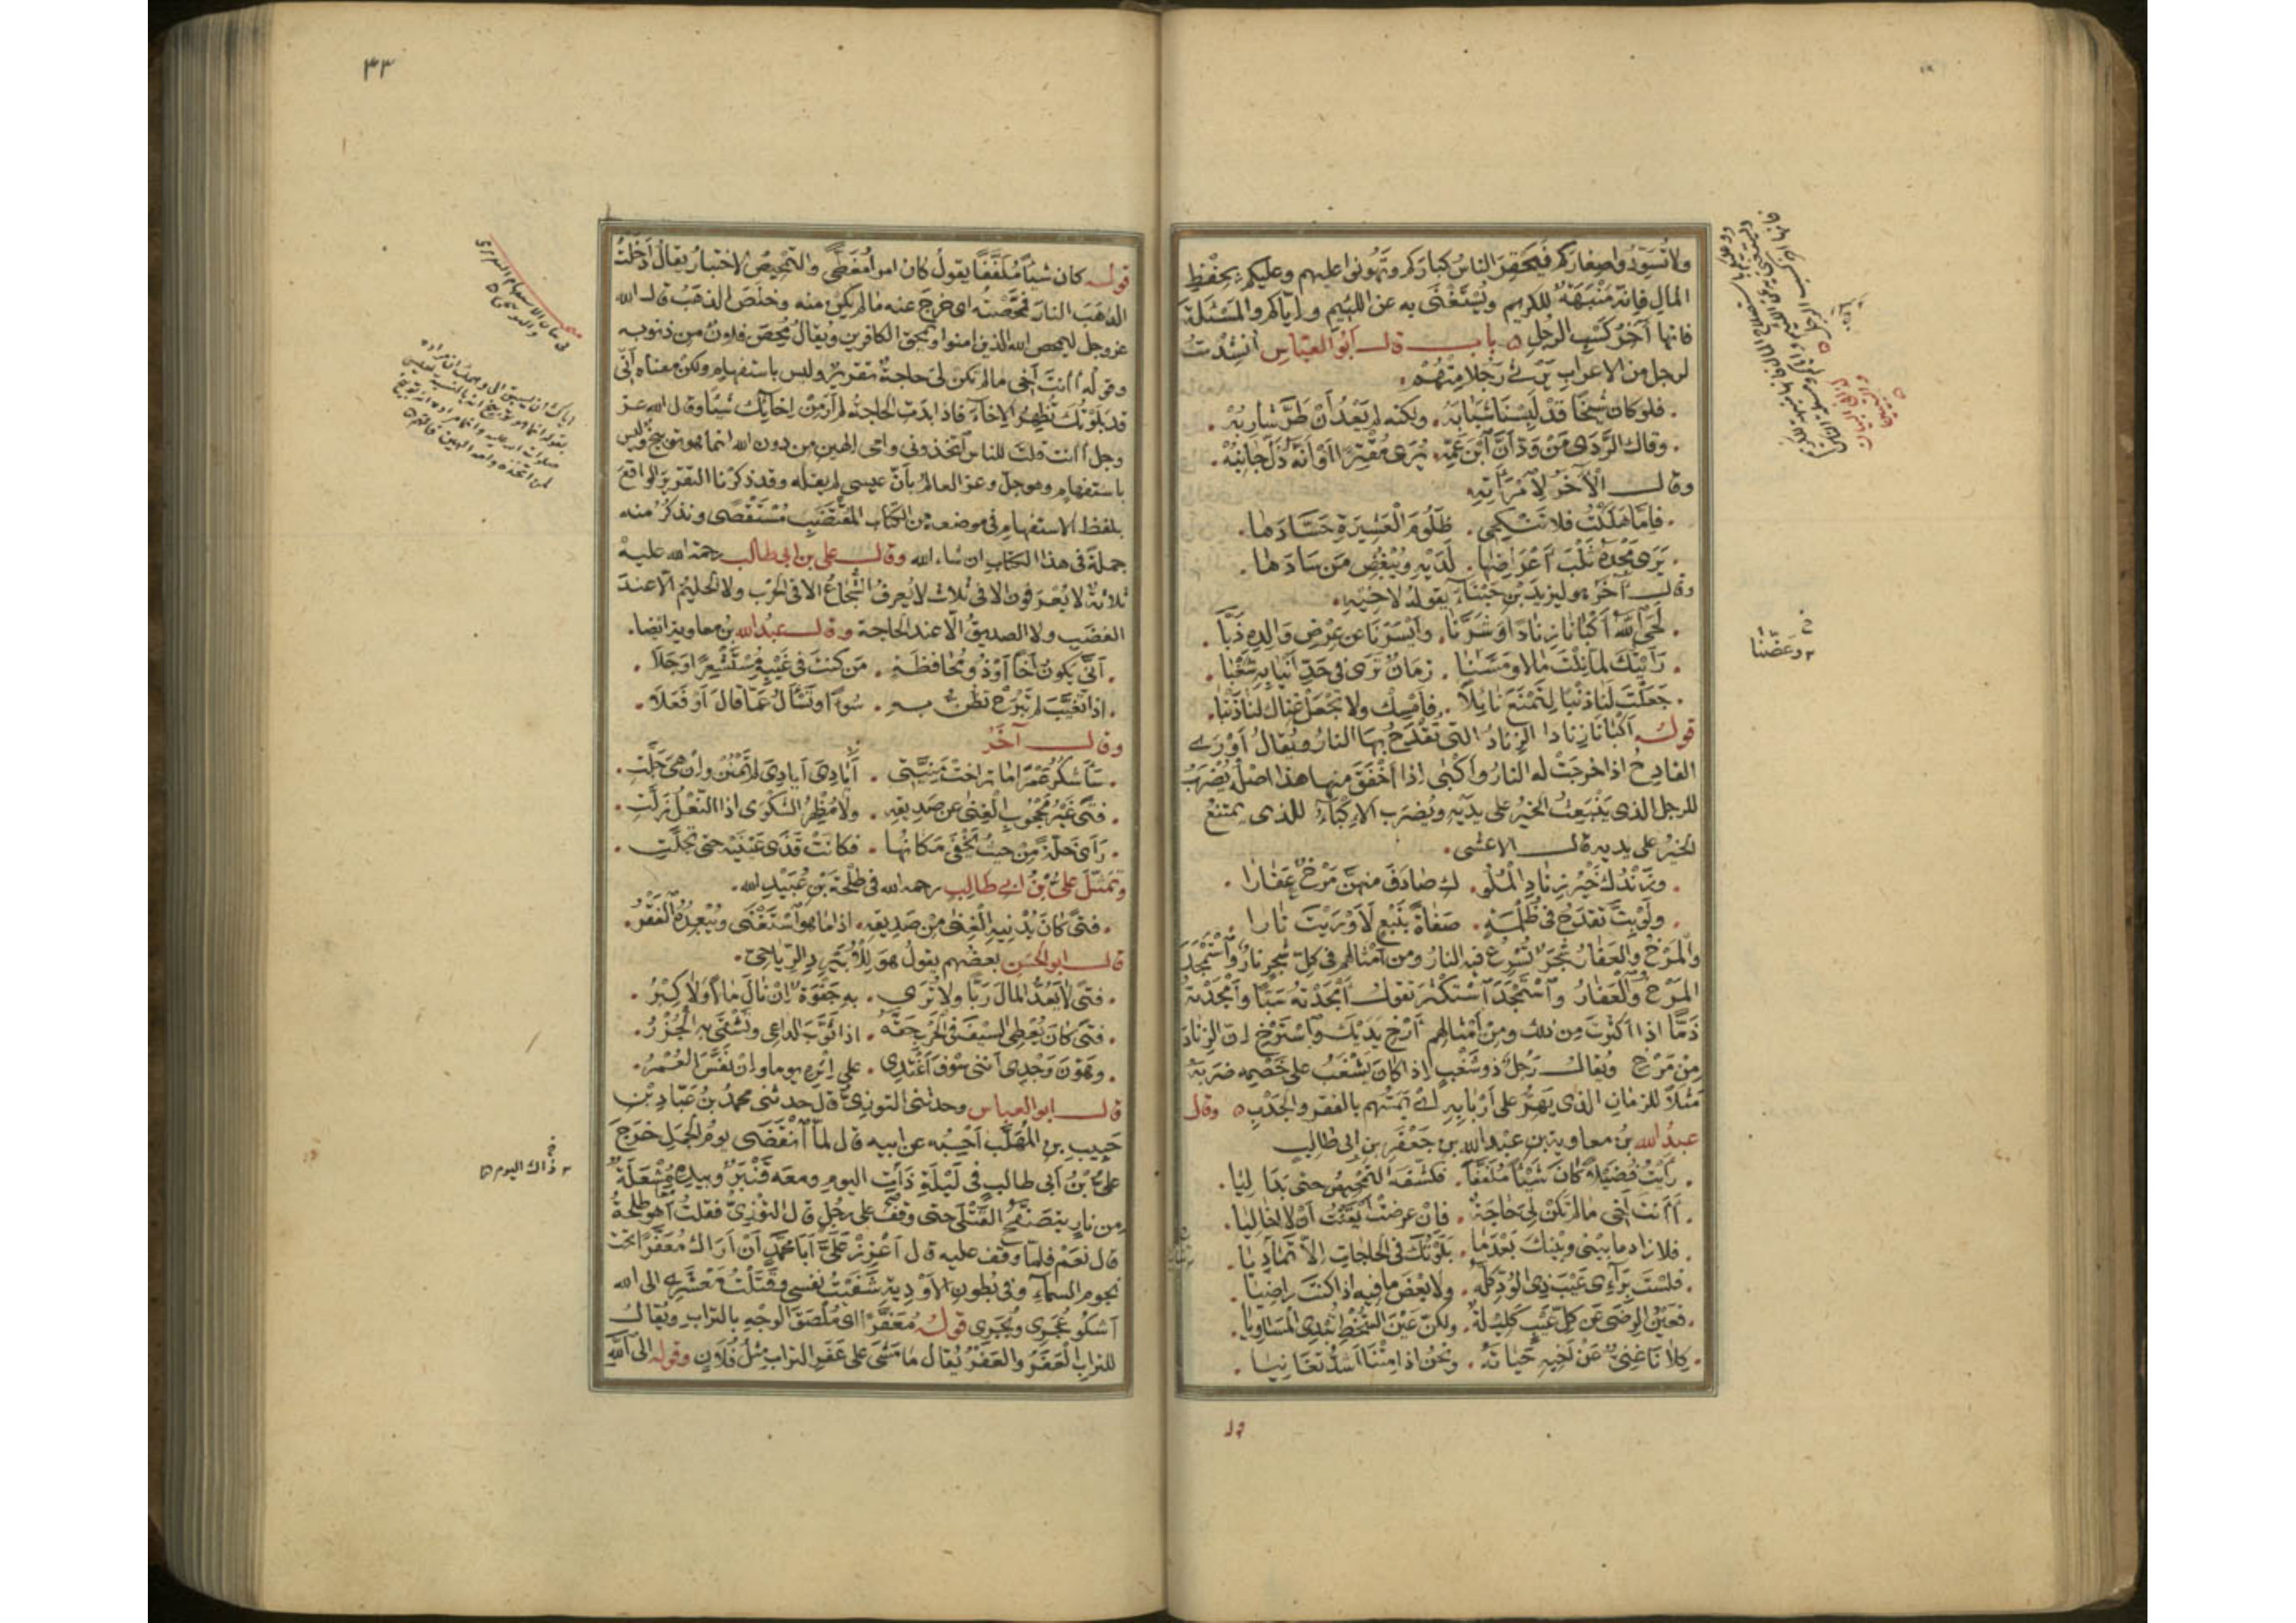 ولا تسودوا صغاركم فيحقر الناس كباركم وتهونوا عليهم وعليكم بحفظ
المال فانه منبهة للكريم ويستغنى به عن اللئيم واياكم والمسئلة
فانها آخر كسب الرجل ه باب قال أبو العباس أنشدت
لرجل من الاعراب يرثي رجلا منهم
فلو كان شيخا قد لبسنا شبابه . ولكنه لم يعد أن طر شاربه
وقاك الردى من ود أن ابن عمه . يرى مقترا أو أنه ذل جانبه
وقال الآخر لامرأته
فإما هلكت فلا تنكحي . ظلوم العشيرة حسادها
يرى مجده ثلب أعراضها . لديه ويبغض من سادها
وقال آخر وليزيد بن حبناء يقوله لاخيه
لحى الله أكبانا زنادا وشرنا . وأيسرنا عن عرض والده ذبا
رأيتك لما نلت مالا ومسنا . زمان ترى في حد أنيابه شغبا
جعلت لنا ذنبا لتمنع نائلا . فأمسك ولا تجعل غناك لنا ذنبا
قوله أكبانا زنادا الزناد التي تقدح بها النار ويقال أورى
القادح اذا خرجت له النار وأكبى إذا أخفق منها هذا اصله يضرب
للرجل الذي ينبعث الخير على يديه ويضرب الإكباء للذي يمتنع
الخير على يديه قال الاعشى
وزندك خير زناد الملو . ك صادف منهن مرخ عفارا
ولو بت تقدح في ظلمة . صفاة بنبع لأوريت نارا
والمرخ والعفار شجر تسرع فيه النار ومن أمثالهم في كل شجر نار واستمجد
المرخ والعفار واستمجد استكثر تقول أمجدته سبا وأمجدته
ذما اذا اكثرت من ذلك ومن أمثالهم أرخ يديك واسترخ إن الزناد
من مرخ ويقال رجل ذو شغب إذا كان يشغب على خصمه ضربه
مثلا للزمان الذي يهر على أربابه أي يمسهم بالفقر والجدب ه وقال
عبد الله بن معاوية بن عبد الله بن جعفر بن ابى طالب
رأيت فضيلا كان شيئا ملففا . فكشفه التمحيص حتى بدا ليا
أأنت أخي ما لم تكن لي حاجة . فان عرضت أيقنت أن لا اخا ليا
فلا زاد ما بيني وبينك بعدما . بلوتك في الحاجات إلا تماديا
فلست براءى عيب ذي الود كله . ولا بعض ما فيه اذا كنت راضيا
فعين الرضى عن كل عيب كليلة . ولكن عين السخط تبدي المساويا
كلانا غني عن أخيه حياته . ونحن اذا متنا أشد تغانيا
خ
وعضنا
٣٣
قوله كان شيأ ملففا يقول كان امرا مغطى والتمحيص الاختبار يقال أدخلت
الذهب النار فمحصته اى خرج عنه ما لم يكن منه وخلص الذهب قال الله
عز وجل ليمحص الله الذين امنوا ويمحق الكافرين ويقال محص فلان من ذنوبه
وقوله أأنت أخي ما لم تكن لي حاجة تقرير وليس باستفهام ولكن معناه أني
قد بلوتك تظهر الإخاء فاذا بدت الحاجة لم أر من إخائك شيأ وقال الله عز
وجل أأنت قلت للناس اتخذوني وامي إلهين من دون الله انما هو توبيخ وليس
باستفهام وهو جل وعز العالم بأن عيسى لم يقله وقد ذكرنا التقرير الواقع
بلفظ الاستفهام في موضعه من الكتاب المقتضب مستقصى ونذكر منه
جملة في هذا الكتاب ان شاء الله وقال على بن ابى طالب رحمة الله عليه
ثلاثة لا يعرفون الا في ثلاث لا يعرف الشجاع الا في الحرب ولا الحليم الا عند
الغضب ولا الصديق الا عند الحاجة وقال عبد الله بن معاوية ايضا
أنى يكون أخا أو ذو محافظة . من كنت في غيبه مستشعرا وجلا
اذا تغيب لم تبرح تظن به . سوءا وتسأل عما قال أو فعلا
وقال آخر
سأشكر عمرا ما تراخت منيتي . أيادي لم تمنن وإن هي جلت
فتى غير محجوب الغنى عن صديقه . ولا مظهر الشكوى اذا النعل زلت
رأى خلة من حيث يخفى مكانها . فكانت قذى عينيه حتى تجلت
وتمثل علي بن ابى طالب رحمه الله في طلحة بن عبيد الله
فتى كان يدنيه الغنى من صديقه . اذا ما هو استغنى ويبعده الفقر
قال ابو الحسن بعضهم يقول هو للأبيرد الرياحي
فتى لا يعد المال ربا ولا ترى . به جفوة إن نال مالا ولا كبر
فتى كان يعطي السيف في الحرب حقه . اذا ثوب الداعي وتشقى به الجزر
وهون وجدي أنني سوف أغتدي . على إثره يوما وإن نفس العمر
قال ابو العباس وحدثني التوزي قال حدثني محمد بن عباد بن
حبيب بن المهلب أحسبه عن ابيه قال لما انقضى يوم الجمل خرج
علي بن أبي طالب في ليلة ذات اليوم ومعه قنبر وبيده مشعلة
من نار يتصفح القتلى حتى وقف على رجل قال التوزي فقلت أهو طلحة
قال نعم فلما وقف عليه قال أعزز علي أبا محمد أن أراك معفرا تحت
نجوم السماء وفي بطون الأودية شفيت نفسي وقتلت معشري الى الله
أشكو عجري وبجري قوله معفرا اى ملصق الوجه بالتراب ويقال
للتراب العفر والعفر يقال ما مشى على عفر التراب مثل فلان وقوله الى الله
خ
ذاك اليوم